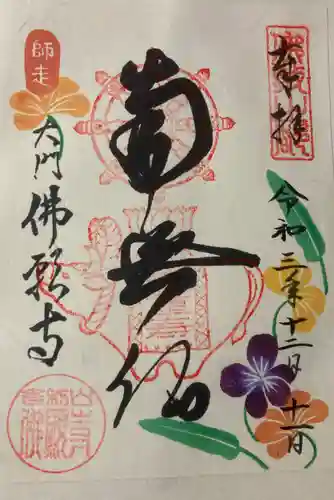 奉拝
令和三年十二月十一日
南無仏
師走
大門
佛願寺